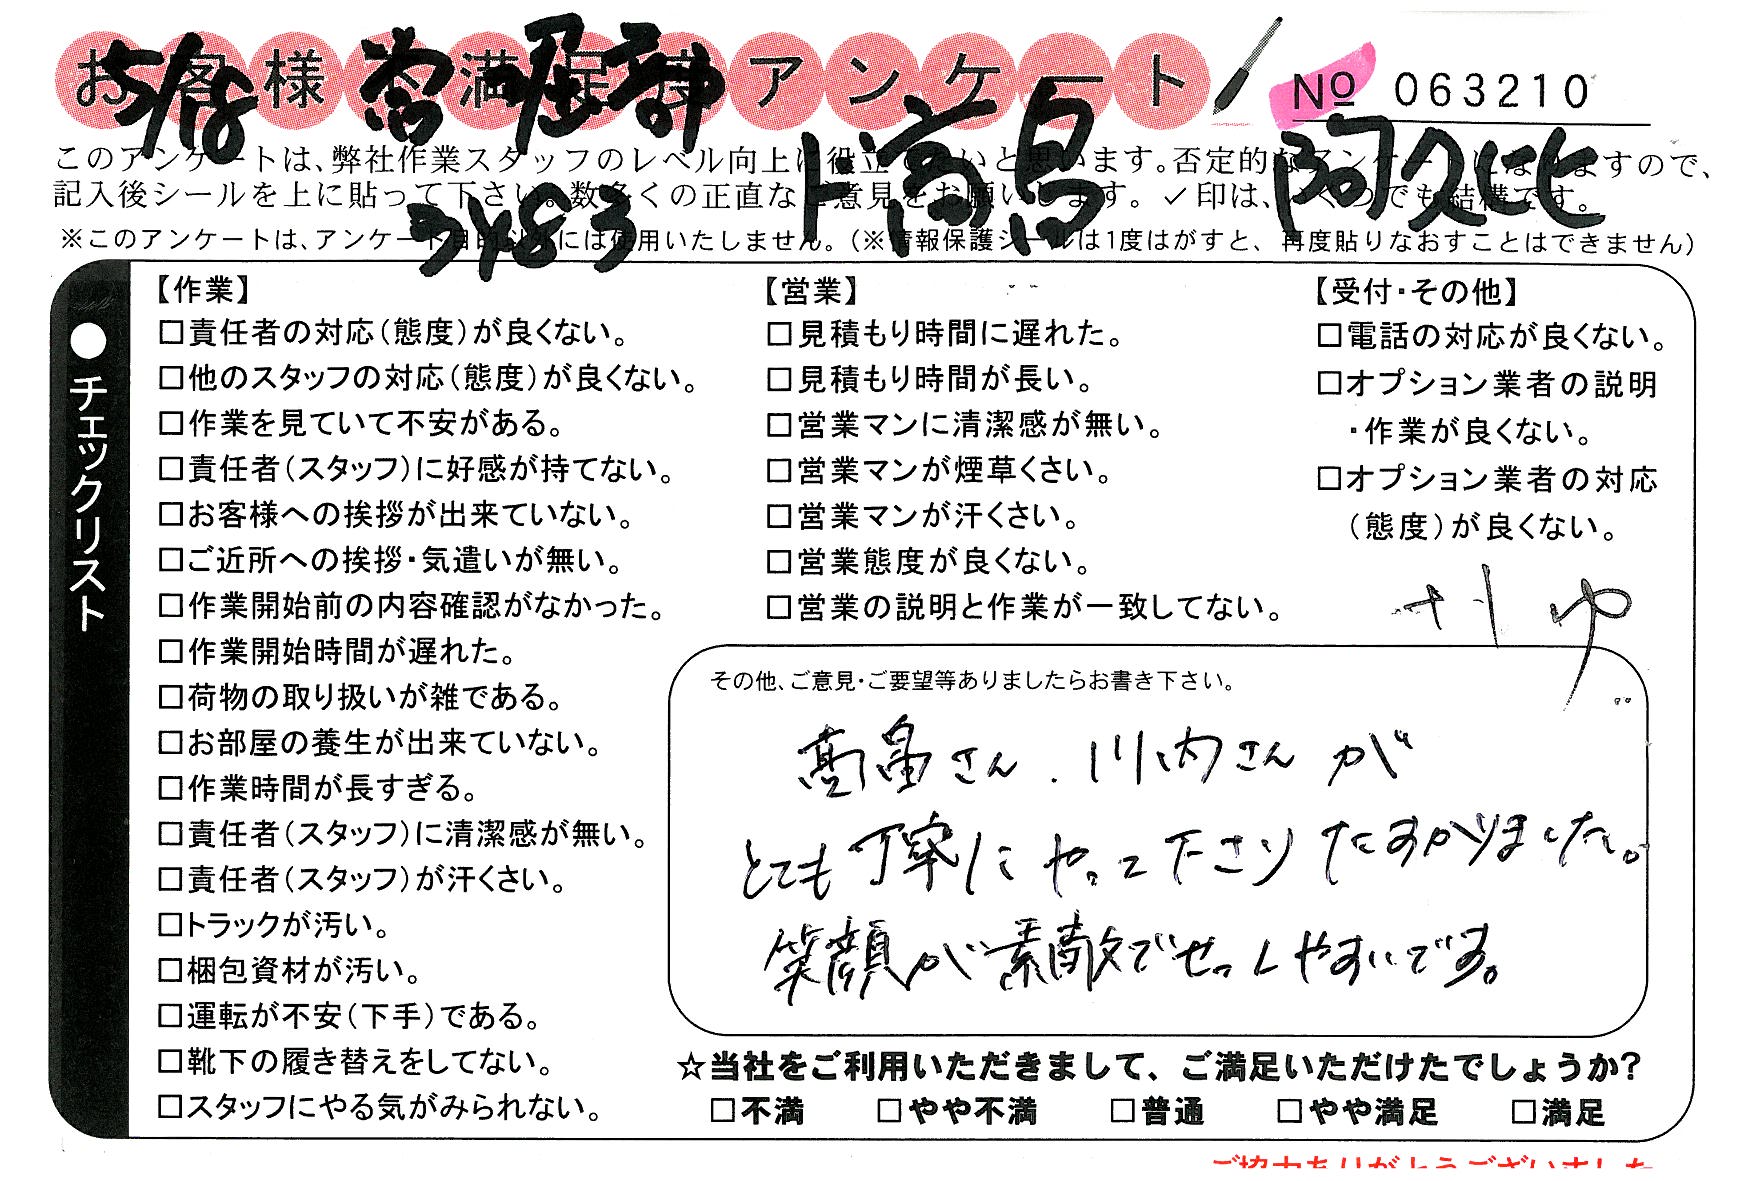 お客様満足度アンケート
№ 063210
5/18 営 堀部 ト高島 阿久比
3483
このアンケートは、弊社作業スタッフのレベル向上に役立てたいと思います。否定的なアンケートになりますので、
記入後シールを上に貼って下さい。数多くの正直なご意見をお願いします。✓印は、いくつでも結構です。
※このアンケートは、アンケート目的以外には使用いたしません。（※情報保護シールは1度はがすと、再度貼りなおすことはできません）
●チェックリスト
【作業】
□責任者の対応（態度）が良くない。
□他のスタッフの対応（態度）が良くない。
□作業を見ていて不安がある。
□責任者（スタッフ）に好感が持てない。
□お客様への挨拶が出来ていない。
□ご近所への挨拶・気遣いが無い。
□作業開始前の内容確認がなかった。
□作業開始時間が遅れた。
□荷物の取り扱いが雑である。
□お部屋の養生が出来ていない。
□作業時間が長すぎる。
□責任者（スタッフ）に清潔感が無い。
□責任者（スタッフ）が汗くさい。
□トラックが汚い。
□梱包資材が汚い。
□運転が不安（下手）である。
□靴下の履き替えをしてない。
□スタッフにやる気がみられない。
【営業】
□見積もり時間に遅れた。
□見積もり時間が長い。
□営業マンに清潔感が無い。
□営業マンが煙草くさい。
□営業マンが汗くさい。
□営業態度が良くない。
□営業の説明と作業が一致してない。
【受付・その他】
□電話の対応が良くない。
□オプション業者の説明
・作業が良くない。
□オプション業者の対応
（態度）が良くない。
その他、ご意見・ご要望等ありましたらお書き下さい。
高畠さん、川内さんが
とても丁寧にやって下さりたすかりました。
笑顔が素敵でせっしやすいです。
☆当社をご利用いただきまして、ご満足いただけたでしょうか?
□不満 □やや不満 □普通 □やや満足 □満足
ご協力ありがとうございました